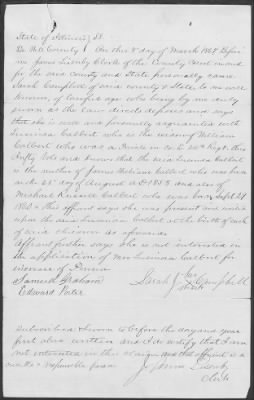 State of Illinois } SS
De Witt County } On this 8 day of March 1867 before
me James Lisenby Clerk of the County Court in and
for the said County and State personally came
Sarah Campbell of said County & State to me well
known, of lawful age who being by me duly
sworn as the law directs deposes and says
that she is well and personally acquainted with
Lucinda Calbert who is the widow of William
Calbert who was a Private in Co E 20th Regt
Infty Vols and knows that the said Lucinda Calbert
is the mother of James William Calbert who was born
on the 25th day of August AD 1858 and also of
Michael Russell Calbert who was born Sept 21
1860 & this affiant says she was present and waited
upon the said Lucinda Calbert at the birth of each
of said children as aforesaid
Affiant further says she is not interested in
the application of Mrs Lucinda Calbert for
increase of Pension
James R Graham Sarah J her Campbell
Edward Porter mark
Subscribed & sworn to before the day and year
first above written and I do certify that I am
not interested in this claim and that affiant is a
credible & responsible person
Lisenby
Clerk